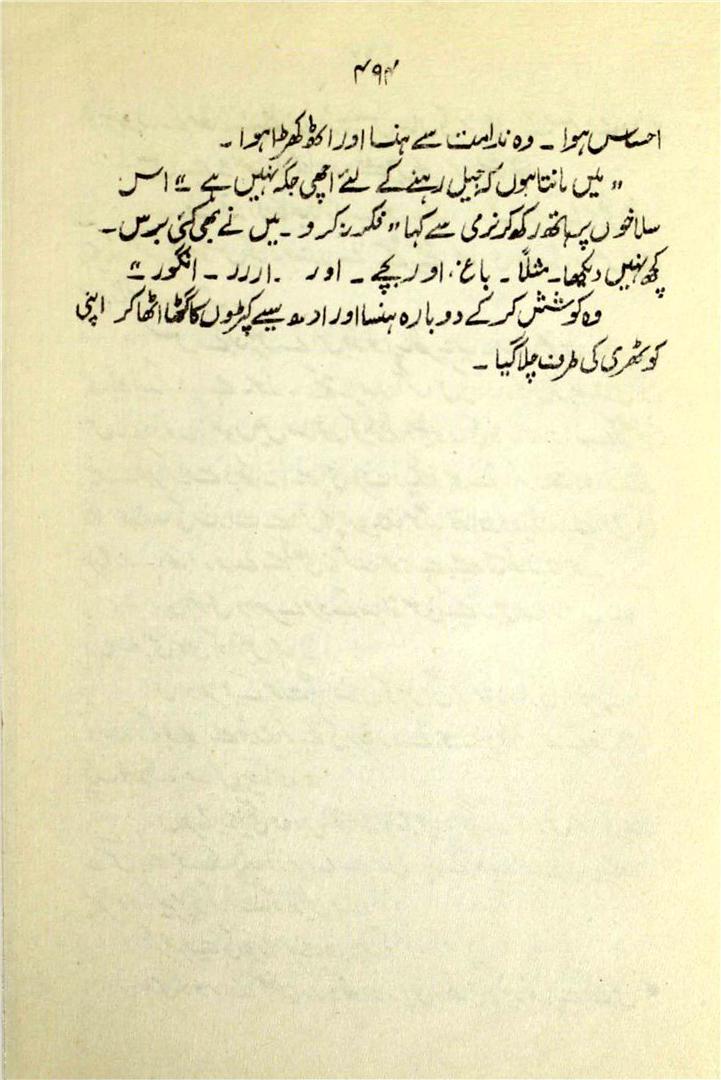 ۴۹۴
احساس ہوا ۔ وہ ندامت سے ہنسا اور اٹھ کھڑا ہوا ۔
”میں مانتا ہوں کہ جیل رہنے کے لئے اچھی جگہ نہیں ہے “ اس
سلاخوں پر ہاتھ رکھ کر نرمی سے کہا ” فکر نہ کرو ۔ میں نے بھی کئی برس ۔
کچھ نہیں دیکھا۔ مثلاً ۔ باغ، اور بچے ۔ اور ۔ اررر ۔ انگور ۔ “
وہ کوشش کر کے دوبارہ ہنسا اور کپڑوں کا گٹھا اٹھا کر اپنی
کوٹھری کی طرف چلا گیا ۔